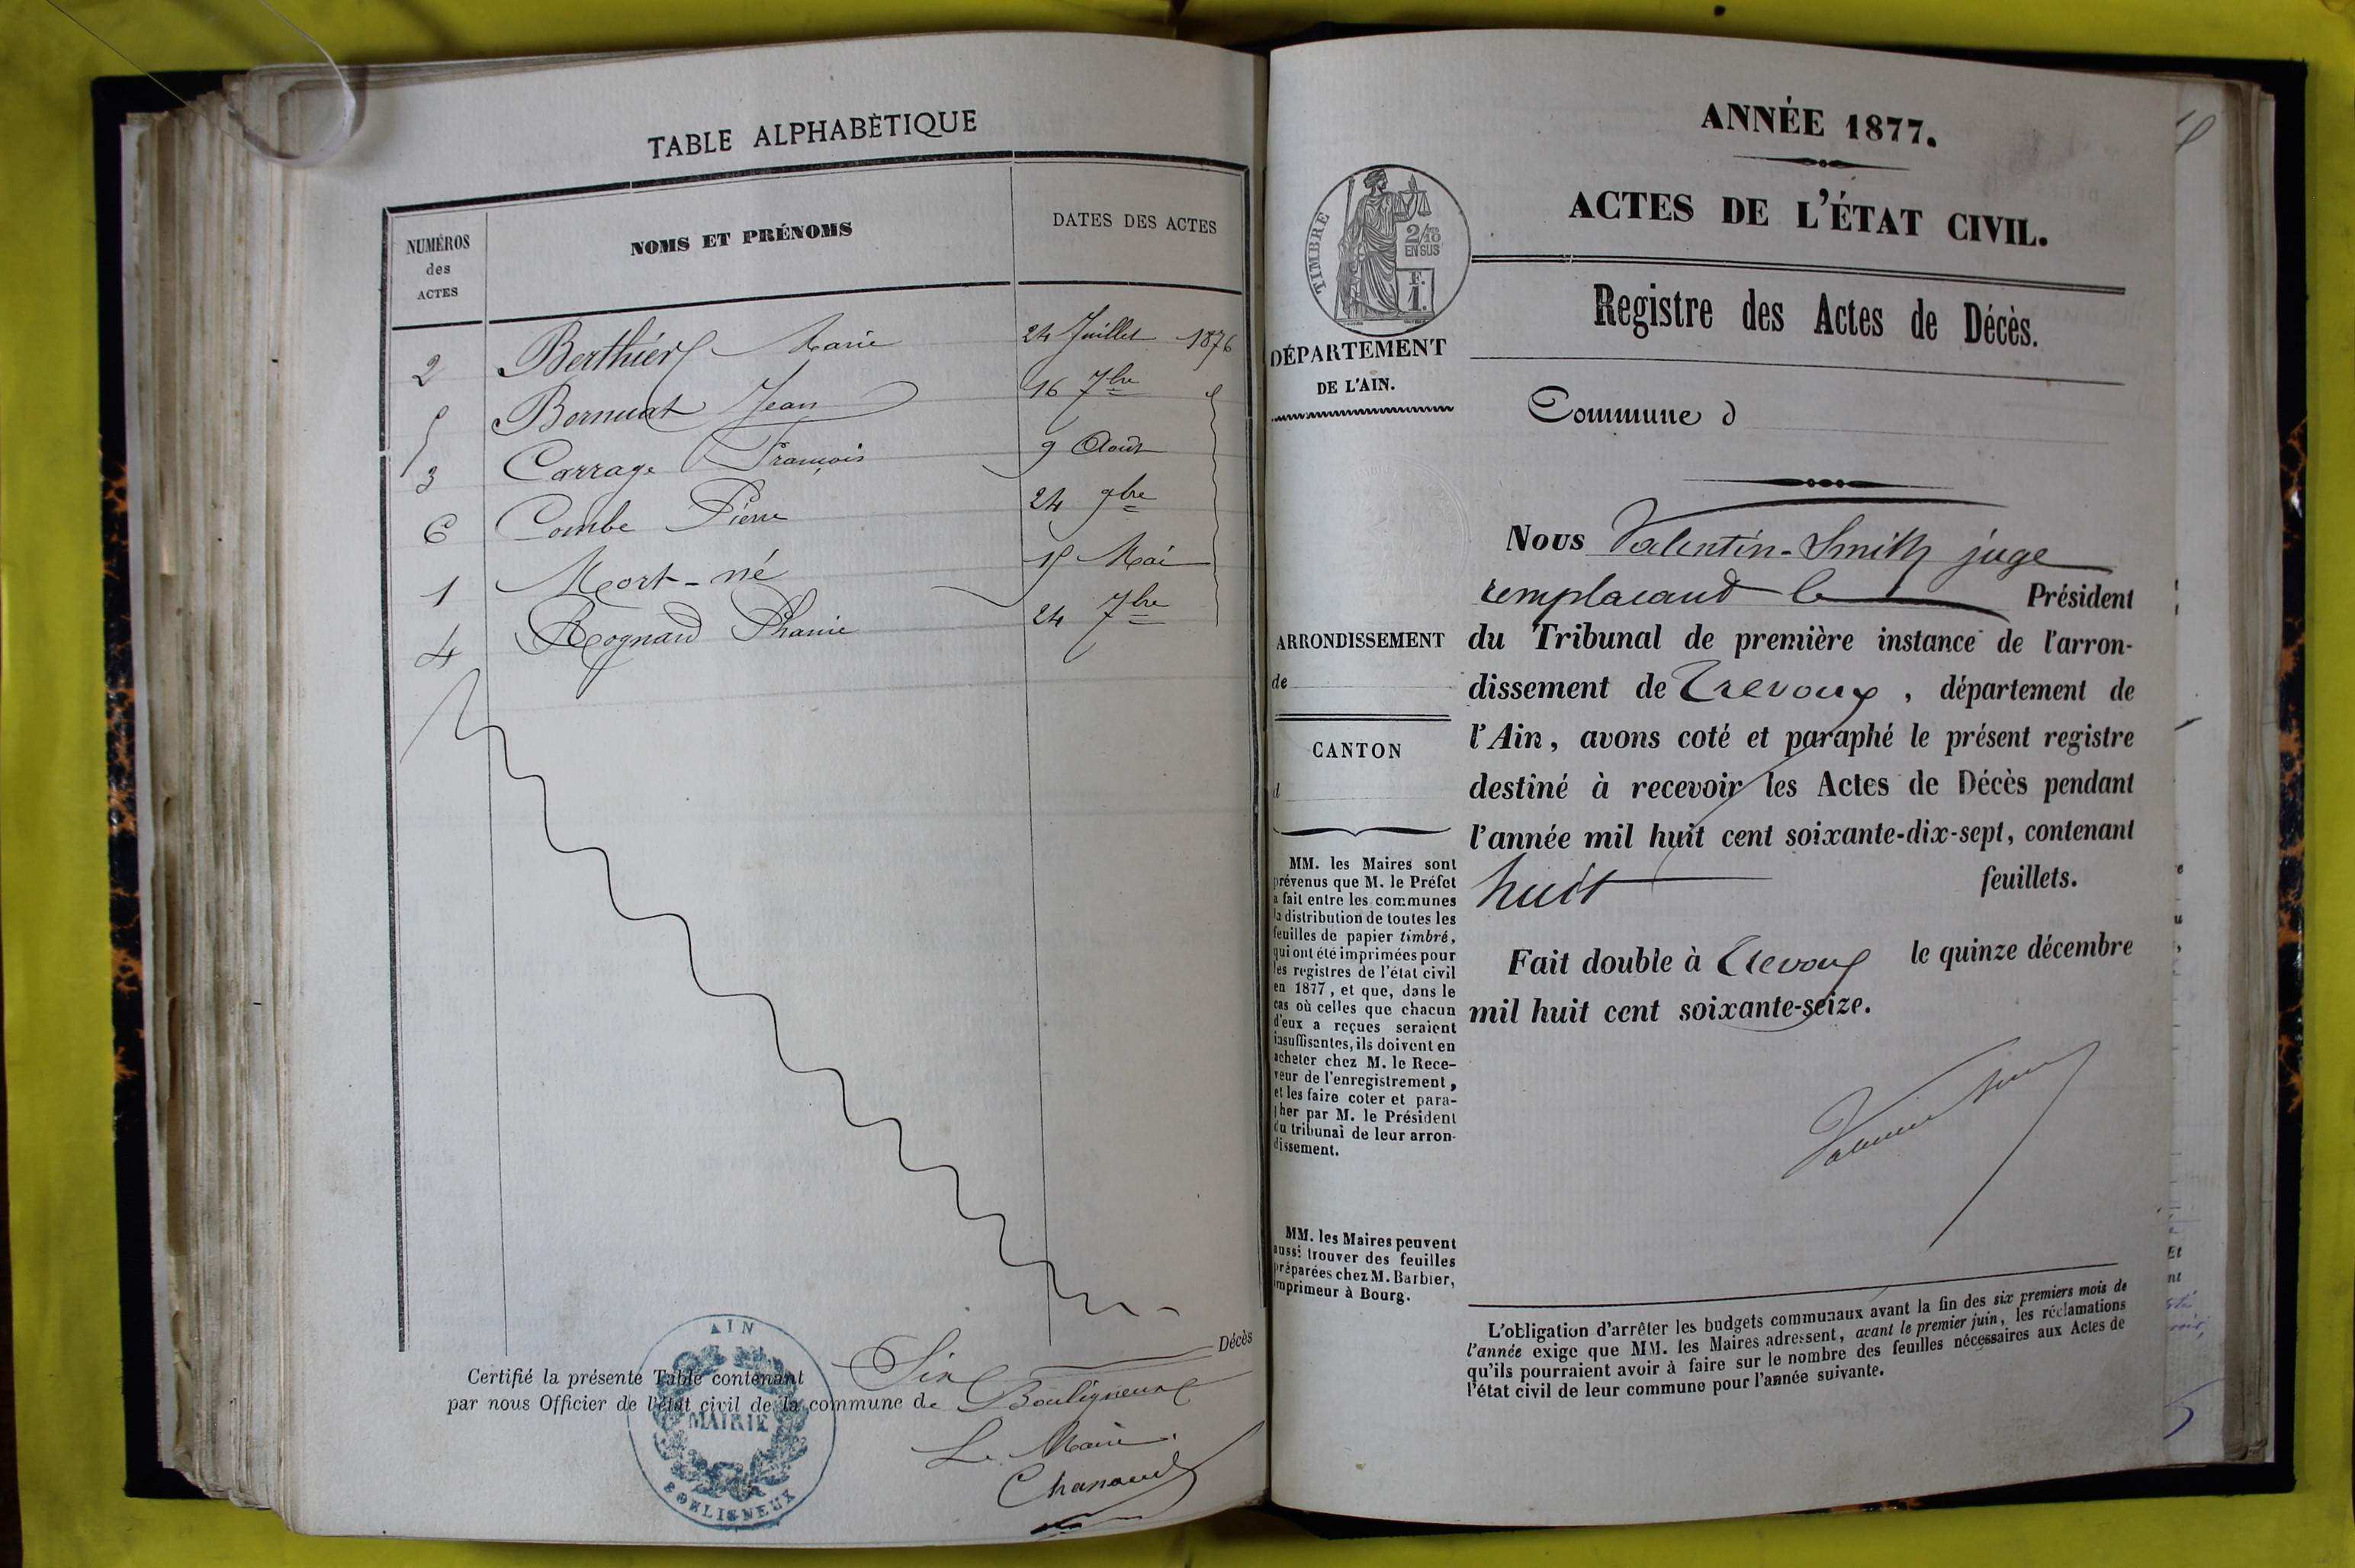 TABLE ALPHABÈTIQUE
NUMÉROS
des
ACTES
NOMS ET PRÉNOMS
DATES DES ACTES
2 Berthier Marie 24 Juillet 1876
5 Bornuat Jean 16 7bre
3 Carrage François 9 Août
6 Combe Pierre 24 9bre
1 Mort-né 15 Mai
4 Rognard Phanie 24 7bre
Certifié la présente Table contenant Six Décès
par nous Officier de l'état civil de la commune de Bouligneux
Le Maire
Chanaud
AIN
MAIRIE
BOULIGNEUX
ANNÉE 1877.
ACTES DE L'ÉTAT CIVIL.
TIMBRE
2/10
EN SUS
F.
1.
Registre des Actes de Décès.
DÉPARTEMENT
DE L'AIN.
Commune d
ARRONDISSEMENT
de
CANTON
d
MM. les Maires sont
prévenus que M. le Préfet
a fait entre les communes
la distribution de toutes les
feuilles de papier timbré,
qui ont été imprimées pour
les registres de l'état civil
en 1877, et que, dans le
cas où celles que chacun
d'eux a reçues seraient
insuffisantes, ils doivent en
acheter chez M. le Rece-
veur de l'enregistrement,
et les faire coter et para-
pher par M. le Président
du tribunal de leur arron-
dissement.
MM. les Maires peuvent
aussi trouver des feuilles
préparées chez M. Barbier,
imprimeur à Bourg.
Nous Valentin-Smith juge
remplacant le Président
du Tribunal de première instance de l'arron-
dissement de Trevoux, département de
l'Ain, avons coté et paraphé le présent registre
destiné à recevoir les Actes de Décès pendant
l'année mil huit cent soixante-dix-sept, contenant
huit feuillets.
Fait double à Trevoux le quinze décembre
mil huit cent soixante-seize.
L'obligation d'arrêter les budgets communaux avant la fin des six premiers mois de
l'année exige que MM. les Maires adressent, avant le premier juin, les réclamations
qu'ils pourraient avoir à faire sur le nombre des feuilles nécessaires aux Actes de
l'état civil de leur commune pour l'année suivante.